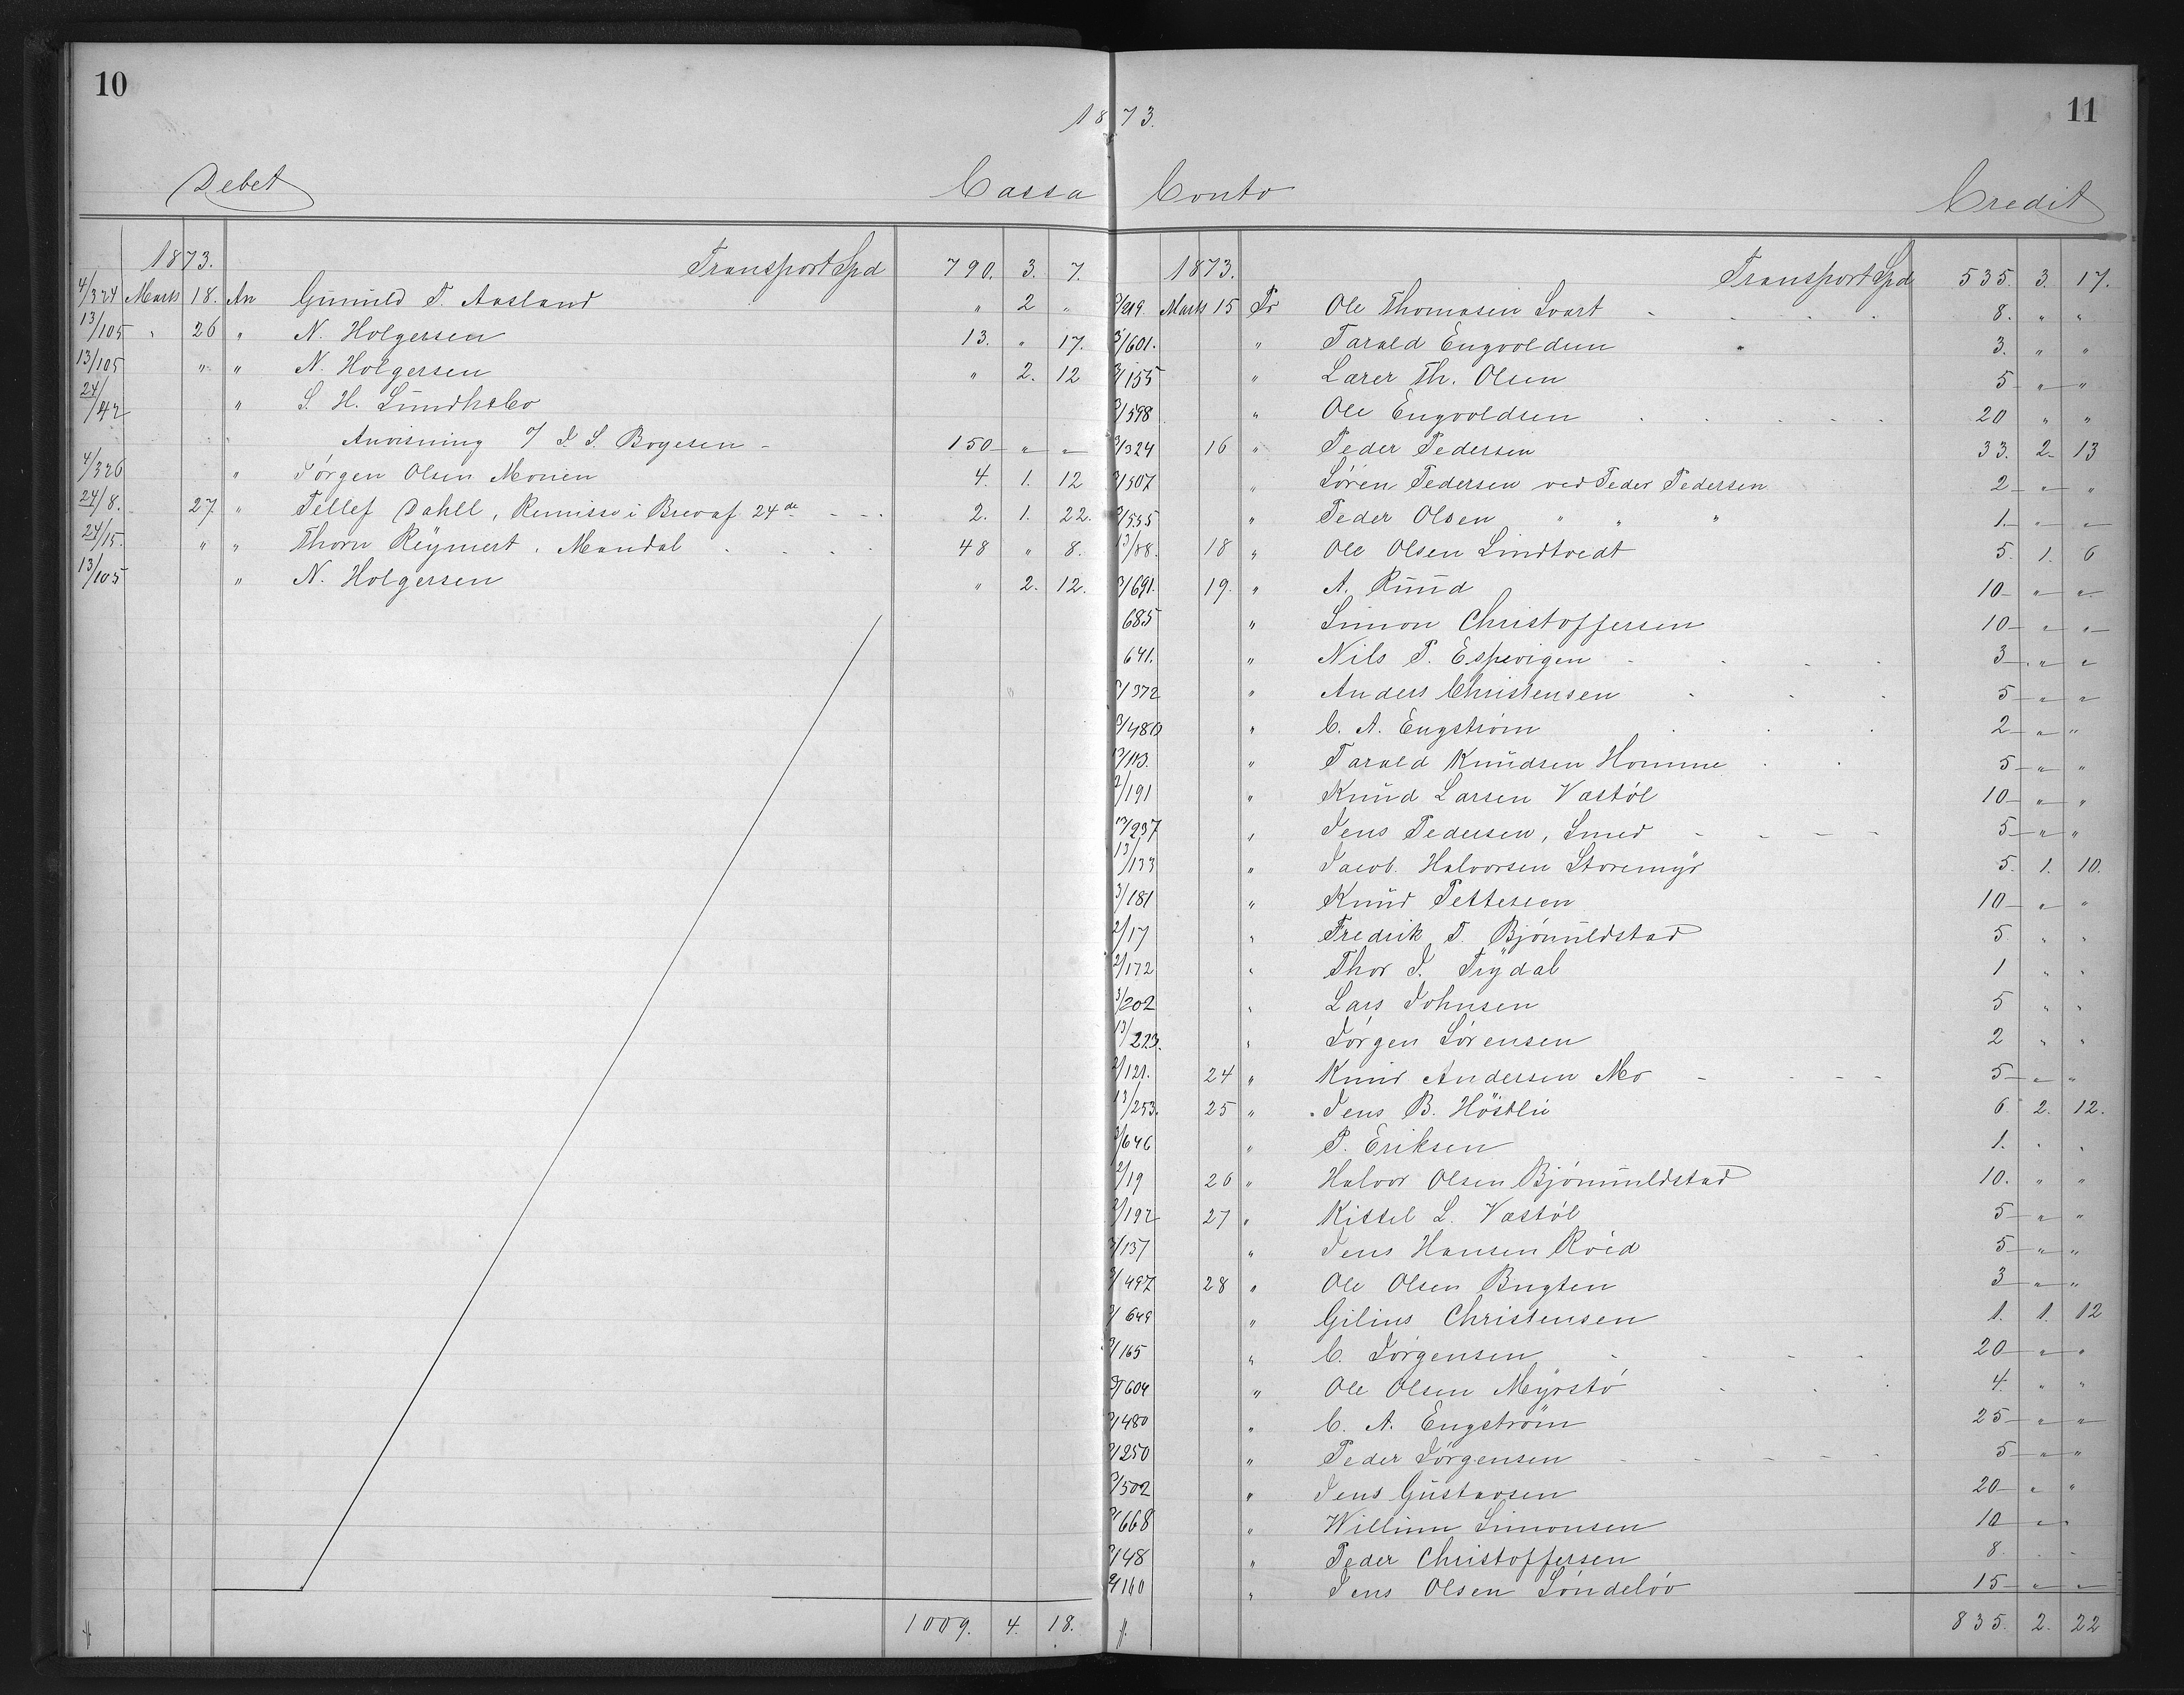 10
11
1873.
Debet Cassa Conto Credit
1873. Transport Spd 790. 3. 7.
4/324 Marts 18. An Gunuld T. Aasland " 2 "
13/105 " 26 " N. Holgersen 13. " 17.
13/105 " " N. Holgersen " 2. 12
24/42 " S. H. Lundhsbo
Anvisning o/ J. S. Bogesen - 150 " "
4/326 " Jørgen Olsen Monen 4. 1. 12
24/8. 27 " Tellef Dahll, Remisse i Brev af 24de 2. 1. 22.
24/15. " " Thorn Reymert. Mandal 48 " 8.
13/105 " N. Holgersen " 2. 12.
1009. 4. 18.
1873. Transport Spd 535. 3. 17.
Marts 15 Pr Ole Thomasen Svart 8. " "
3/601. " Tarald Engvoldsen 3. " "
3/155 " Lærer Th. Olsen 5 " "
3/598 " Ole Engvoldsen 20 " "
3/324 16 " Peder Pedersen 33. 2. 13
3/507 " Søren Pedersen ved Peder Pedersen 2 " "
3/535 " Peder Olsen " " " 1. " "
13/88. 18 " Ole Olsen Lindtvedt 5. 1. 6
3/691. 19. " A. Ruud 10 " "
685 " Simon Christoffersen 10 " "
641. " Nils P. Espevigen 3 " "
3/372 " Anders Christensen 5 " "
3/480 " C. A. Engström 2 " "
13/113. " Tarald Knudsen Homme 5 " "
2/191 " Knud Larsen Vastøl 10 " "
13/237 " Jens Pedersen, Smed 5 " "
13/133 " Jacob Halvorsen Storemyr 5. 1. 10.
3/181 " Knud Pettersen 10 " "
2/17 " Fredrik T. Bjørnuldstad 5 " "
2/172 " Thor J. Trydal 1 " "
3/202 " Lars Johnsen 5 " "
13/223. " Jørgen Sørensen 2 " "
2/121. 24 " Knud Andersen Mo 5 " "
13/253. 25 " Jens B. Höstlii 6 2. 12.
3/646 " P. Eriksen 1. " "
2/19 26 " Halvor Olsen Bjørnuldstad 10. " "
2/192 27 " Kittel L. Vastøl 5 " "
3/137 " Jens Hansen Roed 5 " "
3/497 28 " Ole Olsen Bugten 3 " "
3/649 " Gilius Christensen 1. 1. 12
3/165 " C. Jørgensen 20 " "
3/604 " Ole Olsen Myrstø 4. " "
3/480 " C. A. Engström 25 " "
3/250 " Peder Jørgensen 5 " "
3/502 " Jens Gustavsen 20 " "
3/668 " Willum Simonsen 10 "
3/148 " Peder Christoffersen 8. " "
2/160 " Jens Olsen Søndeløv 15 " "
835. 2. 22